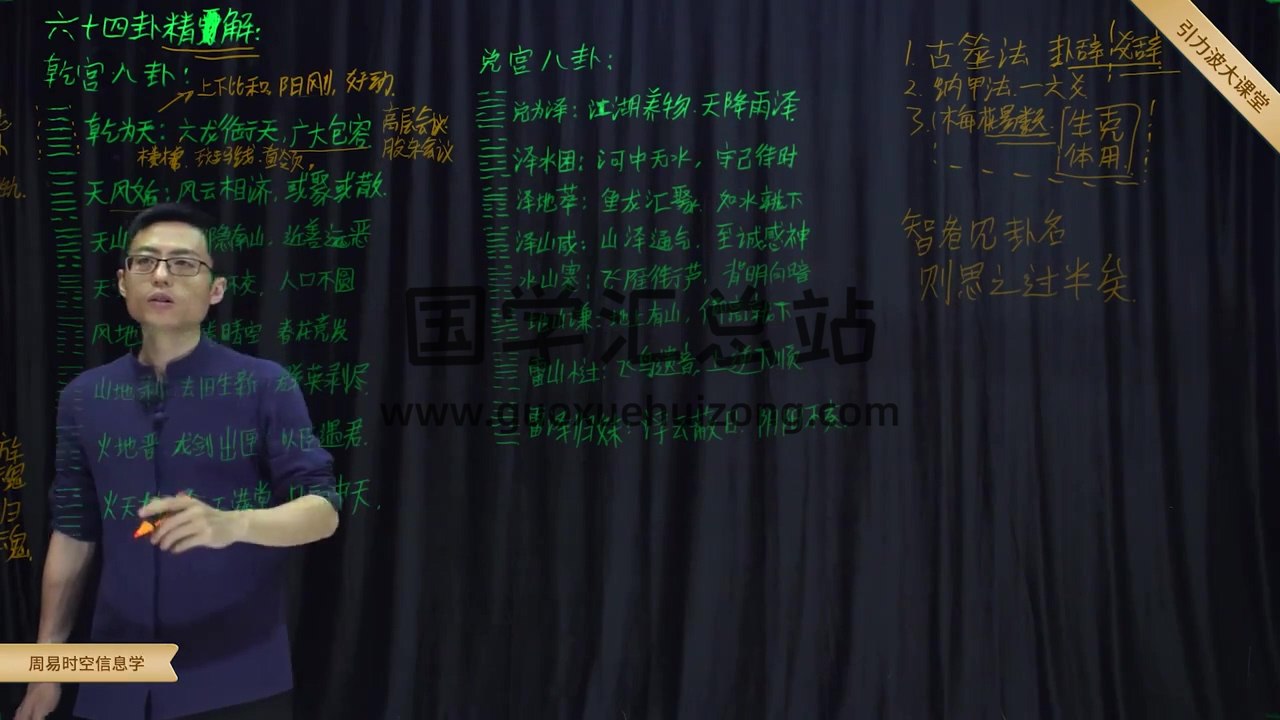 六十四卦精解:
乾宫八卦:
上下比和, 阳刚, 好动.
乾为天: 六龙御天, 广大包容
高层会议
股东会议
天风姤: 风云相济, 或聚或散.
天山 隐南山, 近善远恶
天 不交, 人口不圆
风地 晴空 春花竞发
山地剥 去旧生新 群英剥尽
火地晋 龙剑出匣 以臣遇君.
火天 满堂 中天.
兑宫八卦:
兑为泽: 江湖养物. 天降雨泽
泽水困: 河中无水, 守己待时
泽地萃: 鱼龙汇聚. 如水就下
泽山咸: 山泽通气, 至诚感神
水山蹇: 飞雁衔芦, 背明向暗
地山谦: 地中有山, 就下
雷山 飞鸟遗音, 上逆下顺
雷泽归妹: 浮云蔽日. 阴阳不交
1. 古筮法 卦辞, 爻辞
2. 纳甲法. 一六爻
3. 梅花易数 生克
体用
智者见卦名
则思之过半矣.
旋
魂
归
魂
引力波大课堂
国学汇总站
www.guoxuehuizong.com
周易时空信息学